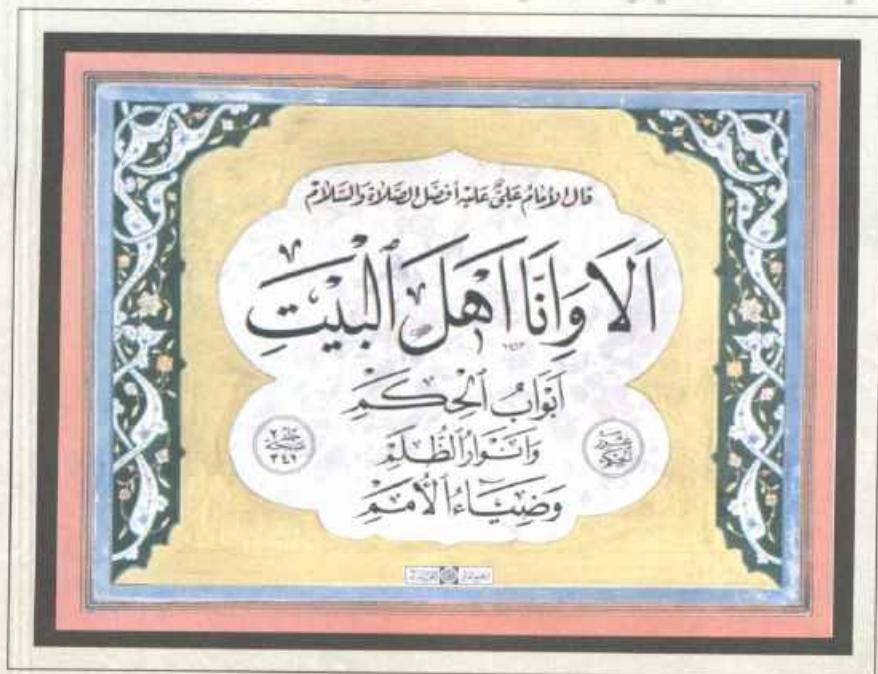 قال الإمام عليٌّ عليه أفضل الصلاة والسلام
اَلاَ وَاِنَّا اَهْلَ ٱلْبَيْتِ
١٤١٣
اَبْوَابُ ٱلْحِكَمْ
وَاَنْوَارُ ٱلظُّلَمْ
وَضِيَاءُ ٱلْأُمَمْ
غرر الحكم
جلد ٢
صفحة
٣٤١